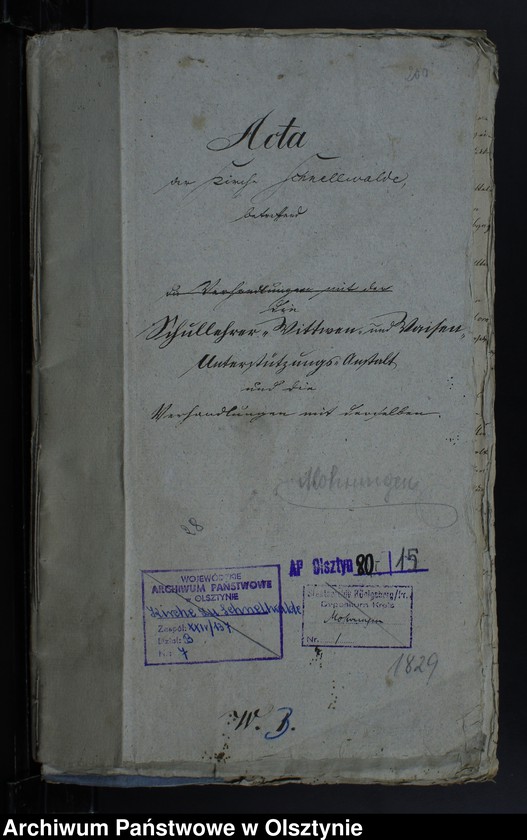 200
Acta
der Kirche Schnellwalde,
betreffend
die Verhandlungen mit der
die
Schullehrer-Wittwen- und Waisen-
Unterstützungs-Anstalt
und die
Verhandlungen mit derselben.
Mohrungen
28
WOJEWÓDZKIE
ARCHIWUM PAŃSTWOWE
OLSZTYNIE
Kirche zu Schnellwalde
Zespół: XXIV/137
Dział: B
Nr: 7
AP Olsztyn 20 / 15
Staatsarchiv Königsberg/Pr.
Depositum Kreis
Mohrungen
Nr. 1
1829
W. B.
Archiwum Państwowe w Olsztynie